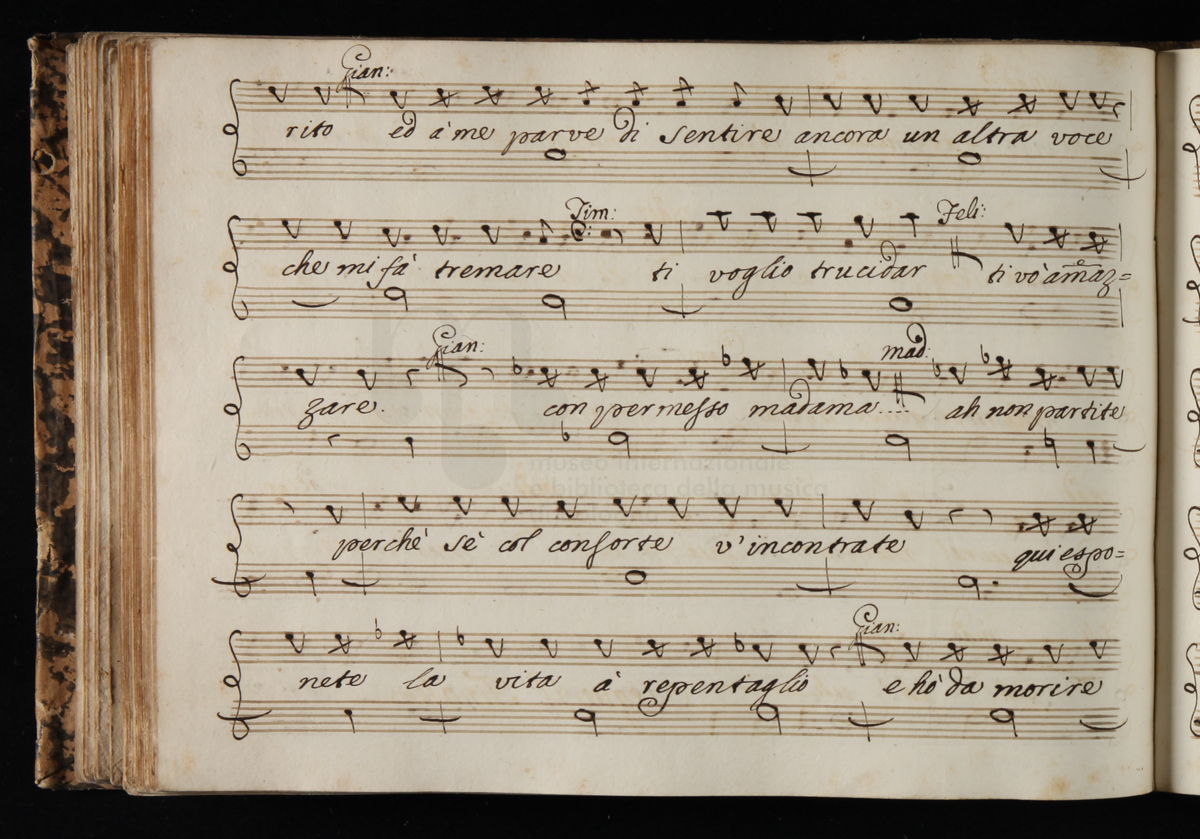 Gian:
rito ed à me parve di sentire ancora un altra voce
Tim: Feli:
che mi fà tremare ti voglio trucidar ti vò amaz=
Gian: mad:
zare. con permesso madama.... ah non partite
museo internazionale
e biblioteca della musica
perchè sè col consorte v'incontrate qui espo=
Gian:
nete la vita à repentaglio e hò da morire